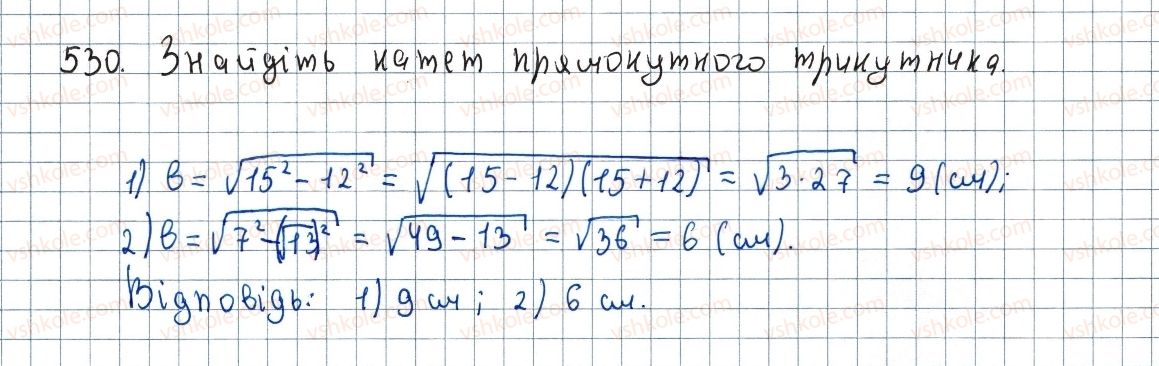 530. Знайдіть катет прямокутного трикутника.
1) в = √(15² - 12²) = √((15-12)(15+12)) = √(3·27) = 9 (см);
2) в = √(7² - (√13)²) = √(49 - 13) = √36 = 6 (см).
Відповідь: 1) 9 см; 2) 6 см.